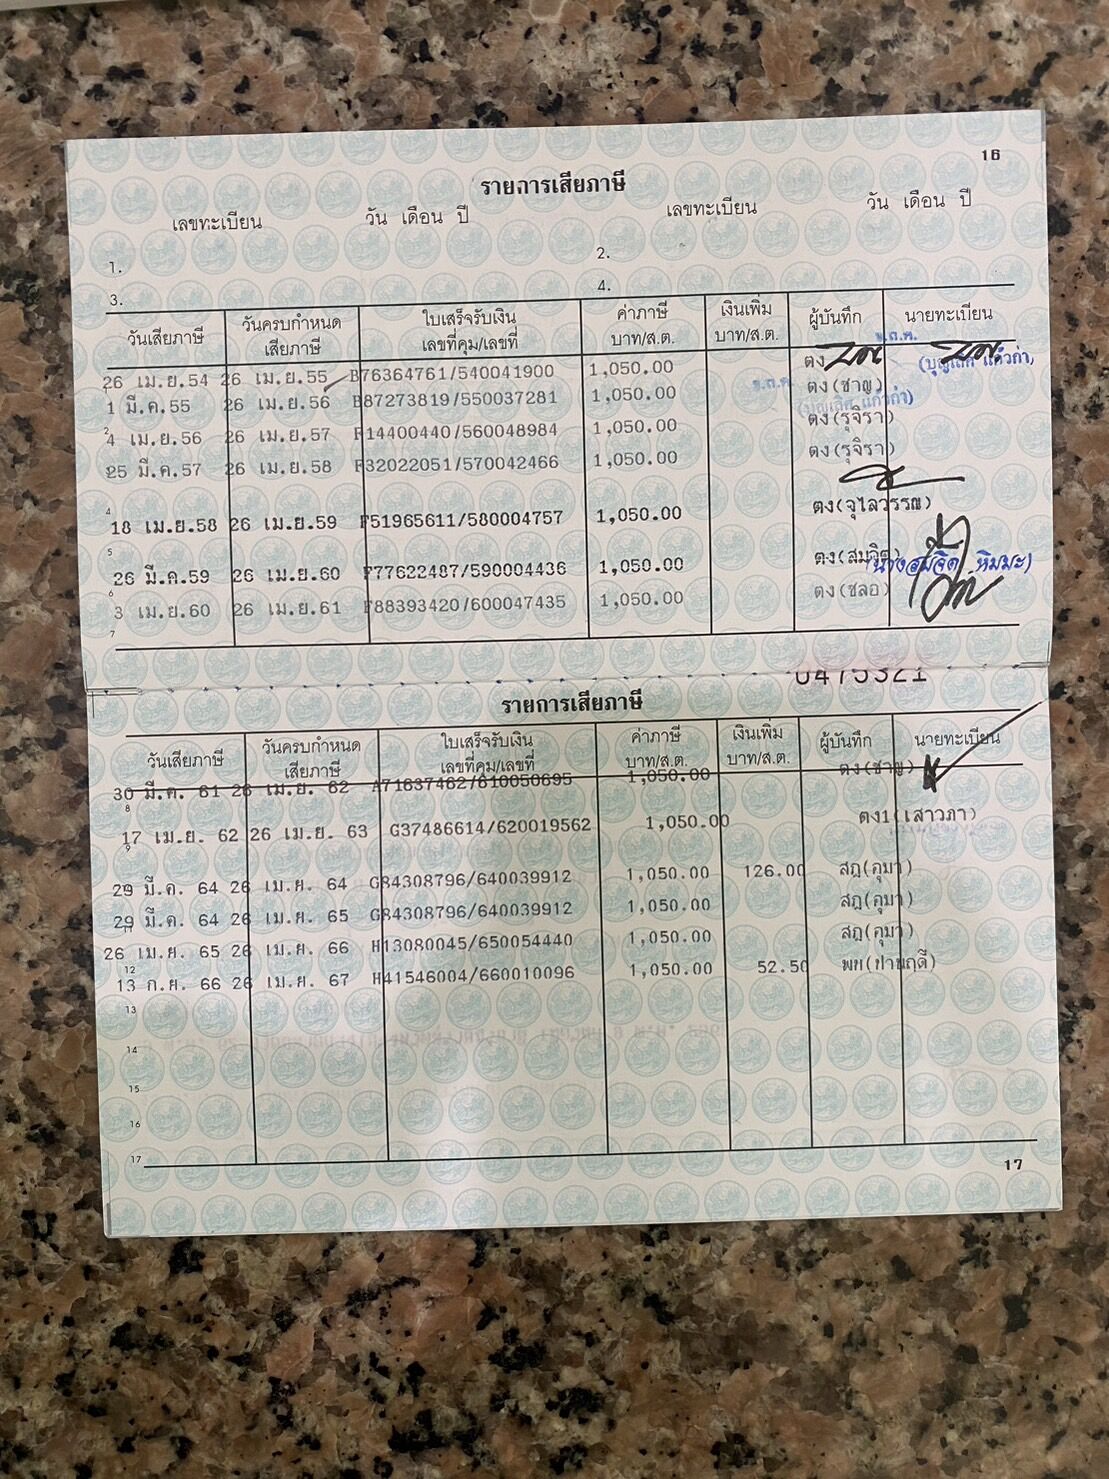 16
รายการเสียภาษี
เลขทะเบียน วัน เดือน ปี เลขทะเบียน วัน เดือน ปี
1. 2.
3. 4.
วันเสียภาษี วันครบกำหนดเสียภาษี ใบเสร็จรับเงิน เลขที่คุม/เลขที่ ค่าภาษี บาท/ส.ต. เงินเพิ่ม บาท/ส.ต. ผู้บันทึก นายทะเบียน
26 เม.ย.54 26 เม.ย.55 B76364761/540041900 1,050.00 ตง
(บุญเลิศ แก้วก่า)
1 1 มี.ค.55 26 เม.ย.56 B87273819/550037281 1,050.00 ตง(ชาญ)
(บุญเลิศ แก้วก่า)
2 4 เม.ย.56 26 เม.ย.57 F14400440/560048984 1,050.00 ตง(รุจิรา)
25 มี.ค.57 26 เม.ย.58 F32022051/570042466 1,050.00 ตง(รุจิรา)
4 18 เม.ย.58 26 เม.ย.59 F51965611/580004757 1,050.00 ตง(จุไลวรรณ)
5 26 มี.ค.59 26 เม.ย.60 F77622487/590004436 1,050.00 ตง(สมจิต)
6 3 เม.ย.60 26 เม.ย.61 F88393420/600047435 1,050.00 ตง(ชลอ)
7
0475321
รายการเสียภาษี
วันเสียภาษี วันครบกำหนดเสียภาษี ใบเสร็จรับเงิน เลขที่คุม/เลขที่ ค่าภาษี บาท/ส.ต. เงินเพิ่ม บาท/ส.ต. ผู้บันทึก นายทะเบียน
30 มี.ค. 61 26 เม.ย. 62 A71637462/610050695 1,050.00 ตง(ชาญ)
8
17 เม.ย. 62 26 เม.ย. 63 G37486614/620019562 1,050.00 ตง1(เสาวภา)
9
29 มี.ค. 64 26 เม.ย. 64 G84308796/640039912 1,050.00 126.00 สฎ(อุมา)
29 มี.ค. 64 26 เม.ย. 65 G84308796/640039912 1,050.00 สฎ(อุมา)
11
26 เม.ย. 65 26 เม.ย. 66 H13080045/650054440 1,050.00 สฎ(อุมา)
12
13 ก.ย. 66 26 เม.ย. 67 H41546004/660010096 1,050.00 52.50
13
14
15
16
17
17